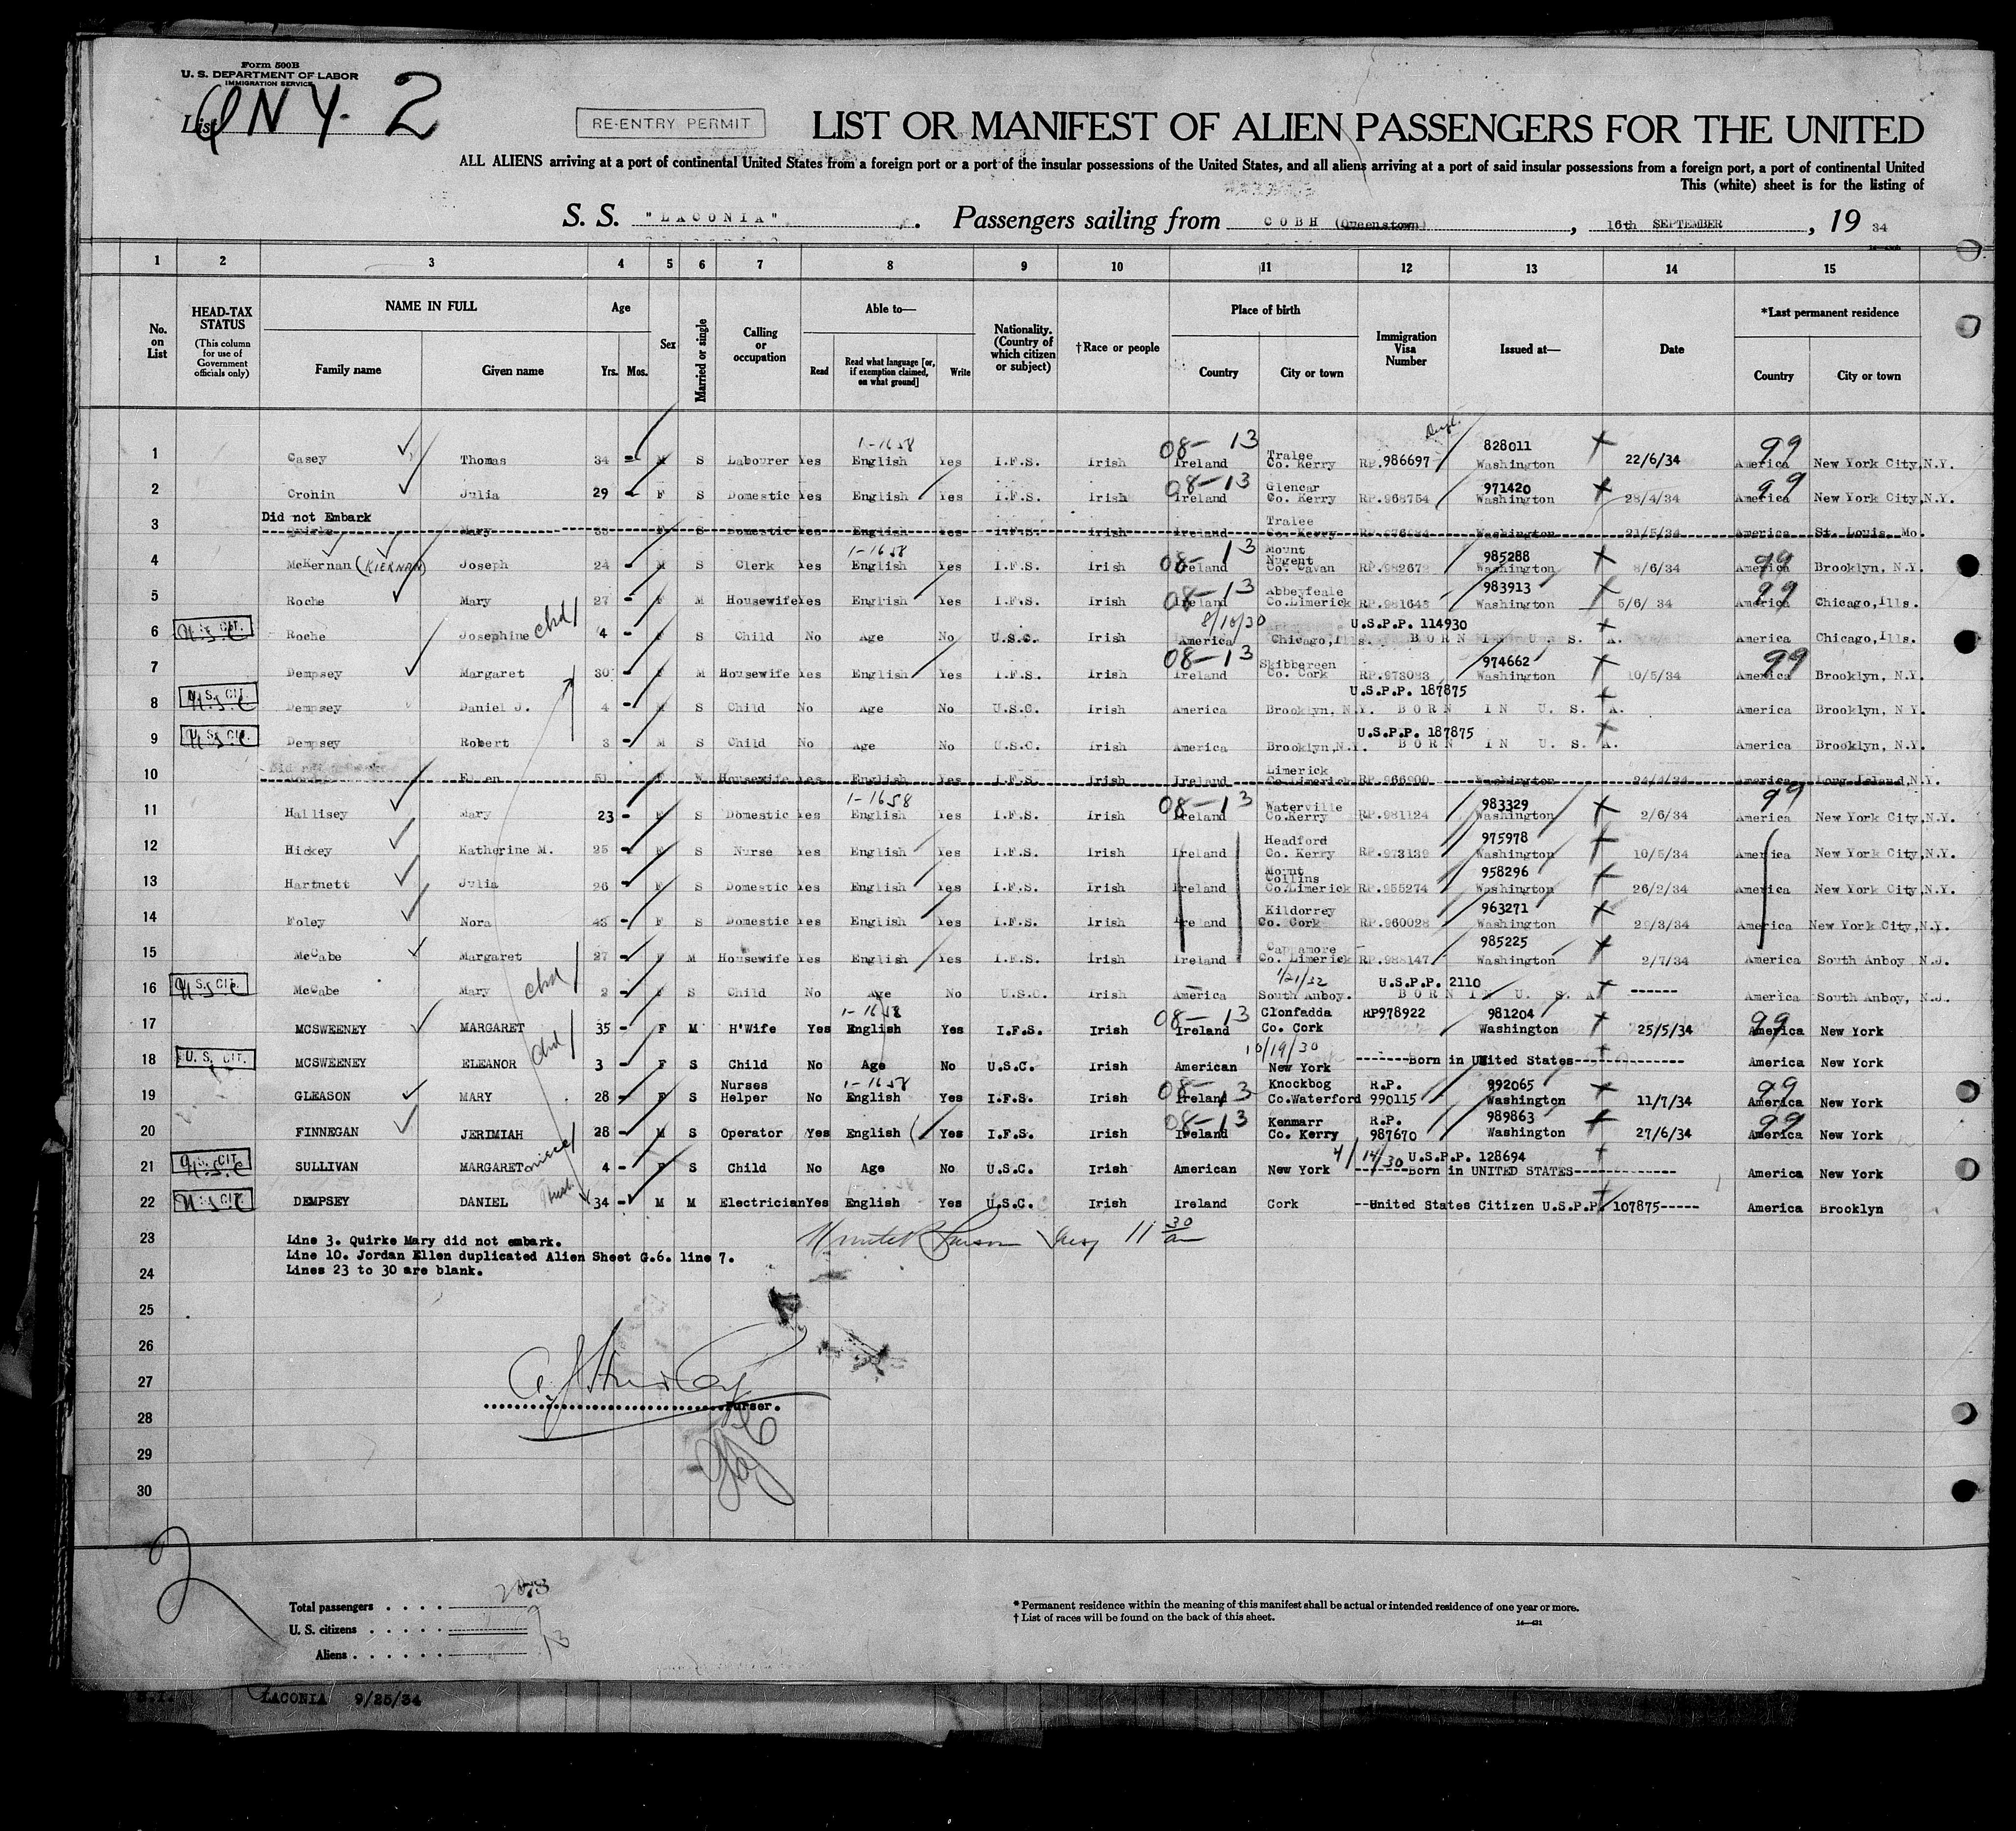 Form 500B
U. S. DEPARTMENT OF LABOR
IMMIGRATION SERVICE
List QNY. 2
RE-ENTRY PERMIT
LIST OR MANIFEST OF ALIEN PASSENGERS FOR THE UNITED
ALL ALIENS arriving at a port of continental United States from a foreign port or a port of the insular possessions of the United States, and all aliens arriving at a port of said insular possessions from a foreign port, a port of continental United
This (white) sheet is for the listing of
S. S. "LACONIA". Passengers sailing from COBH (Queenstown), 16th SEPTEMBER, 19 34
1 2 3 4 5 6 7 8 9 10 11 12 13 14 15
No. on List
HEAD-TAX STATUS
(This column for use of Government officials only)
NAME IN FULL
Family name Given name
Age
Yrs. Mos.
Sex
Married or single
Calling or occupation
Able to—
Read Read what language [or, if exemption claimed, on what ground] Write
Nationality. (Country of which citizen or subject)
†Race or people
Place of birth
Country City or town
Immigration Visa Number
Issued at—
Date
*Last permanent residence
Country City or town
1-1658 08-13 Tralee 828011 99
1 Casey Thomas 34 - M S Labourer Yes English Yes I.F.S. Irish Ireland Co. Kerry RP.986697 Washington 22/6/34 America New York City,N.Y.
08-13 Glencar 971420 99
2 Cronin Julia 29 - F S Domestic Yes English Yes I.F.S. Irish Ireland Co. Kerry RP.968754 Washington 28/4/34 America New York City,N.Y.
Did not Embark Tralee
3 Quirke Mary 33 F S Domestic Yes English Yes I.F.S. Irish Ireland Co. Kerry Washington 21/5/34 America St. Louis, Mo.
1-1658 08-13 Mount Nugent 985288 99
4 McKernan (KIERNAN) Joseph 24 - M S Clerk Yes English Yes I.F.S. Irish Ireland Co. Cavan RP.982672 Washington 8/6/34 America Brooklyn, N.Y.
08-13 Abbeyfeale 983913 99
5 Roche Mary 27 - F M Housewife Yes English Yes I.F.S. Irish Ireland Co.Limerick RP.981643 Washington 5/6/ 34 America Chicago,Ills.
8/10/30 U.S.P.P. 114930
6 U.S. CIT. USC Roche Josephine chd 4 - F S Child No Age No U.S.C. Irish America Chicago,Ills. BORN IN U. S. A. America Chicago,Ills.
08-13 Skibbereen 974662 99
7 Dempsey Margaret 30 - F M Housewife Yes English Yes I.F.S. Irish Ireland Co. Cork RP.973083 Washington 10/5/34 America Brooklyn, N.Y.
U.S.P.P. 187875
8 U.S. CIT. USC Dempsey Daniel J. 4 - M S Child No Age No U.S.C. Irish America Brooklyn, N.Y. BORN IN U. S. A. America Brooklyn, N.Y.
U.S.P.P. 187875
9 U.S. CIT. USC Dempsey Robert 3 - M S Child No Age No U.S.C. Irish America Brooklyn,N.Y. BORN IN U. S. A. America Brooklyn, N.Y.
Limerick
10 Ellen 51 F W Housewife Yes English Yes I.F.S. Irish Ireland Co.Limerick RP.966900 Washington 24/4/34 America Long Island,N.Y.
1-1658 08-13 Waterville 983329 99
11 Hallisey Mary 23 - F S Domestic Yes English Yes I.F.S. Irish Ireland Co.Kerry RP.981124 Washington 2/6/34 America New York City,N.Y.
Headford 975978
12 Hickey Katherine M. 25 - F S Nurse Yes English Yes I.F.S. Irish Ireland Co. Kerry RP.973139 Washington 10/5/34 America New York City,N.Y.
Mount Collins 958296
13 Hartnett Julia 26 - F S Domestic Yes English Yes I.F.S. Irish Ireland Co.Limerick RP.955274 Washington 26/2/34 America New York City,N.Y.
Kildorrey 963271
14 Foley Nora 43 - F S Domestic Yes English Yes I.F.S. Irish Ireland Co. Cork RP.960028 Washington 29/3/34 America New York City,N.Y.
Cappamore 985225
15 McCabe Margaret 27 - F M Housewife Yes English Yes I.F.S. Irish Ireland Co. Limerick RP.988147 Washington 2/7/34 America South Anboy N.J.
1/21/32 U.S.P.P. 2110
16 U.S. CIT. USC McCabe Mary chd 2 - F S Child No Age No U.S.C. Irish America South Anboy. BORN IN U. S. A. ------ America South Anboy, N.J.
1-1658 08-13 Clonfadda RP978922 981204 99
17 MCSWEENEY MARGARET 35 - F M H'Wife Yes English Yes I.F.S. Irish Ireland Co. Cork Washington 25/5/34 America New York
10/19/30
18 U.S. CIT. MCSWEENEY ELEANOR chd 3 - F S Child No Age No U.S.C. Irish American New York -------Born in United States-------------- America New York
Nurses 1-1658 08-13 Knockbog R.P. 992065 99
19 GLEASON MARY 28 - F S Helper No English Yes I.F.S. Irish Ireland Co.Waterford 990115 Washington 11/7/34 America New York
08-13 Kenmarr R.P. 989863 99
20 FINNEGAN JERIMIAH 28 - M S Operator Yes English Yes I.F.S. Irish Ireland Co. Kerry 987670 Washington 27/6/34 America New York
4/14/30 U.S.P.P. 128694
21 U.S. CIT. USC SULLIVAN MARGARET niece 4 - F S Child No Age No U.S.C. Irish American New York -------Born in UNITED STATES-------------- America New York
22 U.S. CIT. USC DEMPSEY DANIEL Husb. 34 - M M Electrician Yes English Yes U.S.C. Irish Ireland Cork --United States Citizen U.S.P.P. 107875----- America Brooklyn
23 Line 3. Quirke Mary did not embark. 11 30 am
Line 10. Jordan Ellen duplicated Alien Sheet G.6. line 7.
24 Lines 23 to 30 are blank.
25
26
27
Purser.
28
29
30
2
Total passengers . . . .
U. S. citizens . . . . .
Aliens . . . . . . 13
* Permanent residence within the meaning of this manifest shall be actual or intended residence of one year or more.
† List of races will be found on the back of this sheet.
LACONIA 9/25/34